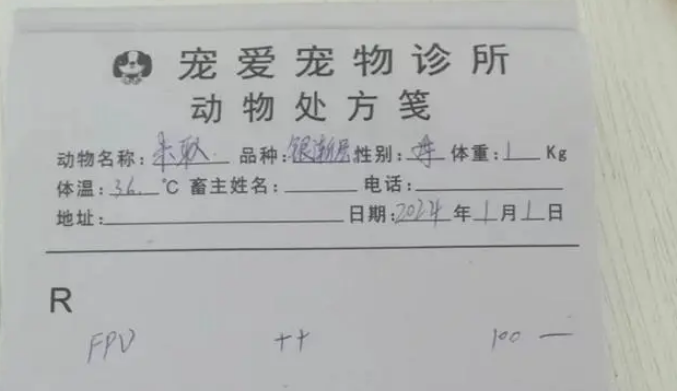 宠爱宠物诊所
动物处方笺
动物名称: 未取 品种: 银渐层 性别: 母 体重: 1 Kg
体温: 36. °C 畜主姓名: 电话:
地址: 日期: 2024 年 1 月 1 日
R
FPV ++ 100 —